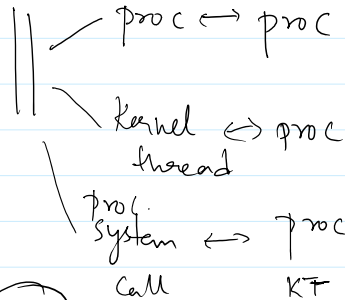 proc ↔ proc
Kernel ↔ proc
thread
proc.
System ↔ proc
Call KT